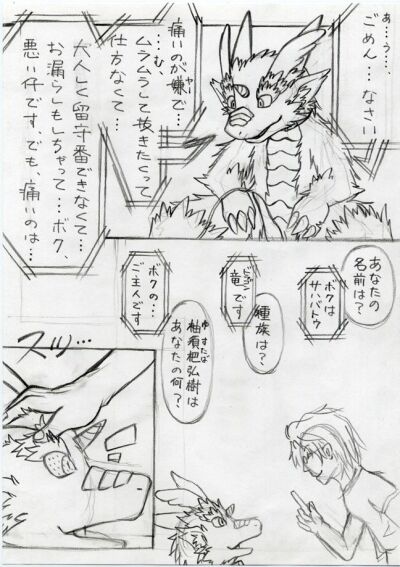 あ…う…、
ごめん…なさい
痛いのが嫌で…
ヤー
…む、
ムラムラして抜きたくって
仕方なくて…
大人しく留守番できなくて…
お漏らしもしちゃって…ボク、
悪い仔です、でも、痛いのは…
あなたの
名前は?
ボクは
サハバトゥ
種族は?
ドラゴン
竜です
柚須杷弘樹は
ゆすたば
あなたの何?
ボクの…
ご主人です
スッ…